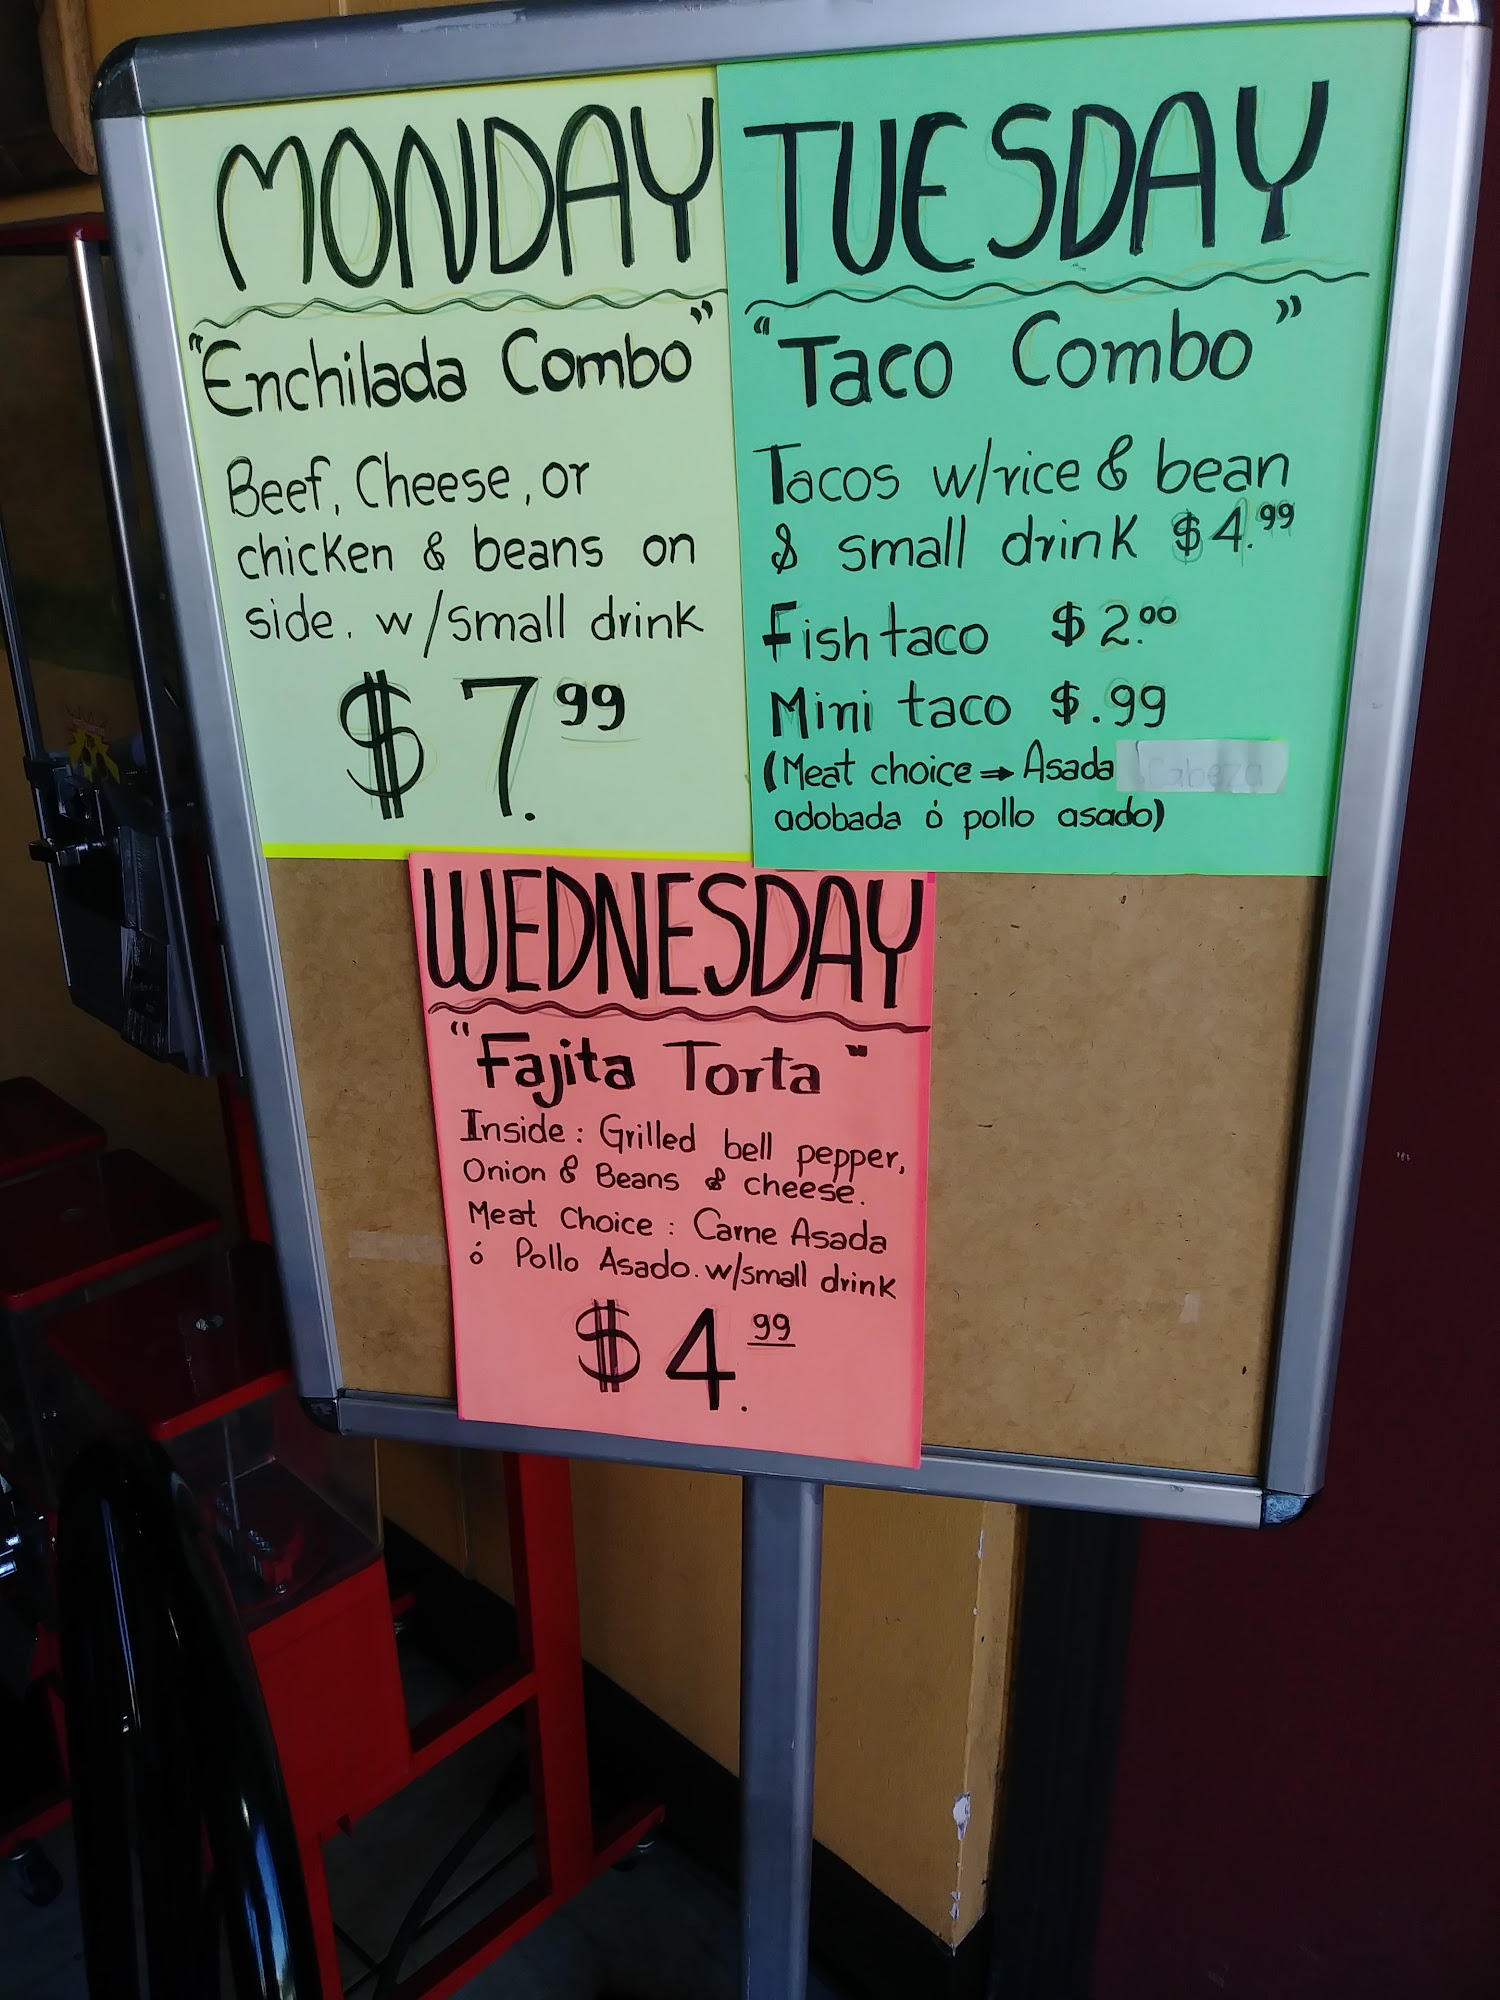 MONDAY
"Enchilada Combo"
Beef, Cheese, or
chicken & beans on
side. w/small drink
$7.99
TUESDAY
"Taco Combo"
Tacos w/rice & bean
& small drink $4.99
Fish taco $2.00
Mini taco $.99
(Meat choice → Asada Cabeza
adobada ó pollo asado)
WEDNESDAY
"Fajita Torta"
Inside: Grilled bell pepper,
Onion & Beans & cheese.
Meat Choice: Carne Asada
ó Pollo Asado. w/small drink
$4.99